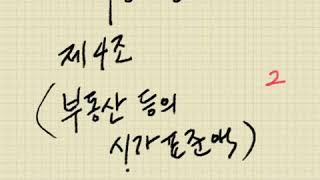 제4조
2
(부동산 등의
시가표준액)